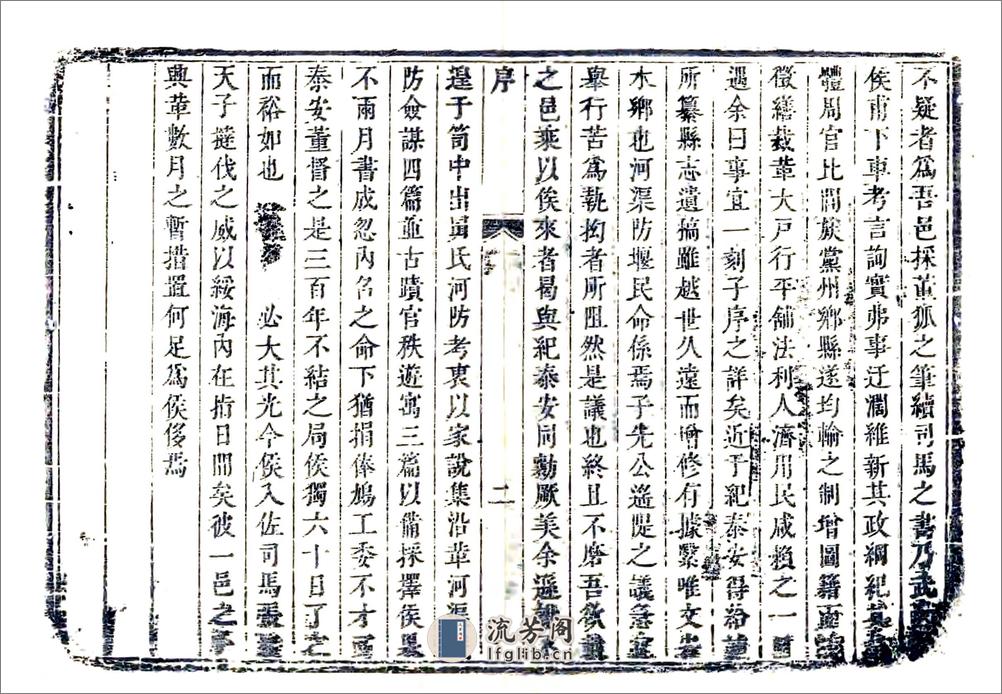 不疑者爲吾邑採董狐之筆續司馬之書乃武
侯甫下車考言詢實弗事迂濶維新其政綱紀
體周官比閭族黨州鄉縣遂均輸之制增圖籍
徵繕裁革大戸行平舖法利人濟用民咸賴之一
遇余曰事宜一刻子序之詳矣近于紀泰安得給
所纂縣志遺搞雖越世久遠而增修有據繄唯文
水鄉也河渠防堰民命係焉子先公遙隄之議急
舉行苦爲執拘者所阻然是議也終且不磨吾欲
之邑乘以俟來者曷與紀泰安同勷厥美余遜
序
二
遑于笥中出揖氏河防考裒以家說集沿革河渠
防僉謀四篇並古蹟官秩遊寓三篇以備採擇侯
不兩月書成忽內名之命下猶捐俸鳩工委不才
泰安董督之是三百年不結之局侯獨六十日了之
而裕如也
必大其光今侯入佐司馬
天子撻伐之威以綏海內在指日間矣彼一邑之
興革數月之暫措置何足爲侯侈焉
流芳阁
lfglib.cn